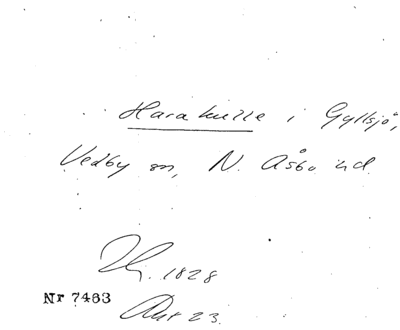 Harakulle i Gyllsjö,
Vedby sn, N. Åsbo hd.
1828
Nr 7463
Akt 23.